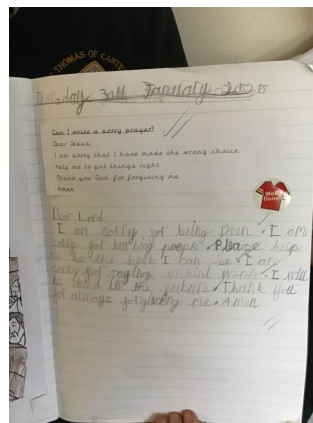 THOMAS OF CANTE
Thursday 30th January 2025
Can I write a sorry prayer?
Dear Jesus,
I am sorry that I have made the wrong choice.
Help me to put things right.
Thank you God, for forgiving me.
Amen
Well
Done!
Dear Lord
I am sorry for being mean. I am
sorry for hurting people. Please help
me be the best I can be. I am
sorry for saying unkind words. I will
be good in the future. Thank you
for always forgiving me. Amen